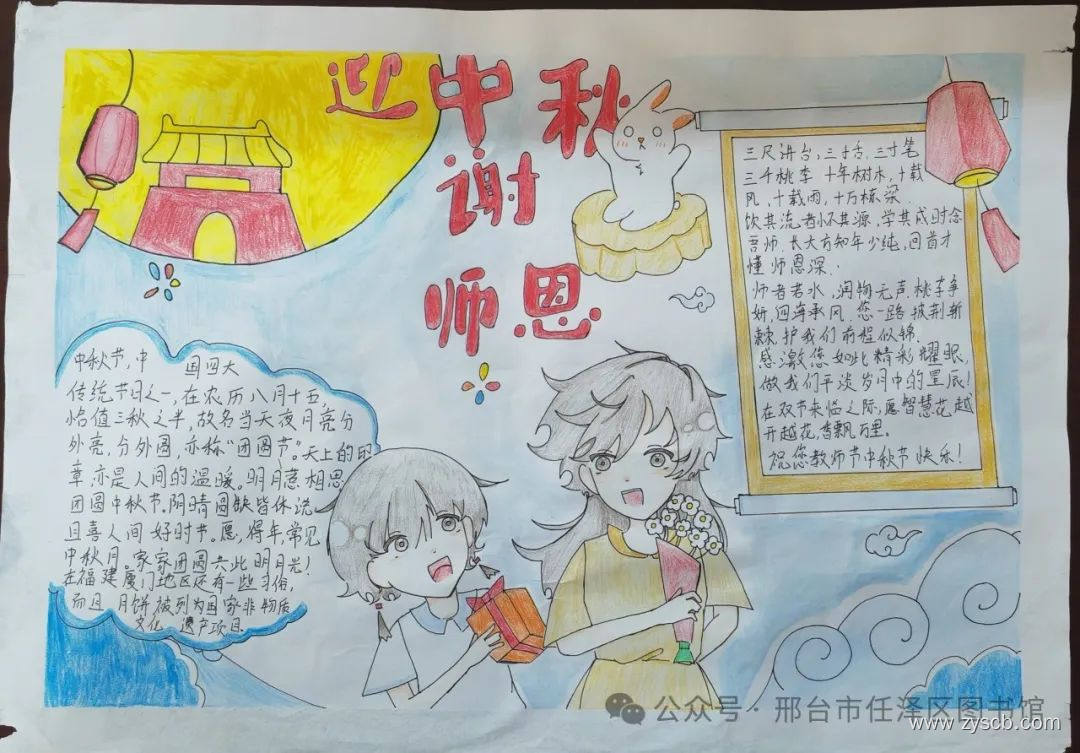 迎中秋
谢
师恩
三尺讲台,三寸舌,三寸笔
三千桃李 十年树木,十载
风,十载雨,十万栋梁
饮其流者怀其源,学其成时念
吾师.长大方知年少纯,回首才
懂师恩深.
师者若水,润物无声.桃李争
妍,四海承风.您一路披荆斩
棘.护我们前程似锦.
感激您如此精彩耀眼,
做我们平淡岁月中的星辰!
在双节来临之际,愿智慧花越
开越花,香飘万里.
祝您教师节中秋节快乐!
中秋节,中 国四大
传统节日之一,在农历八月十五,
恰值三秋之半,故名当天夜月亮分
外亮,分外圆,亦称“团圆节”。天上的
亦是人间的温暖.明月惹相思
团圆中秋节.阴晴圆缺皆休说
且喜人间好时节。愿,得年,常见
中秋月。家家团圆共此明月光!
在福建厦门地区还有一些习俗,
而且 月饼被列为国家非物质
文化 遗产项目.
公众号·邢台市任泽区图书馆
www.zyscb.com